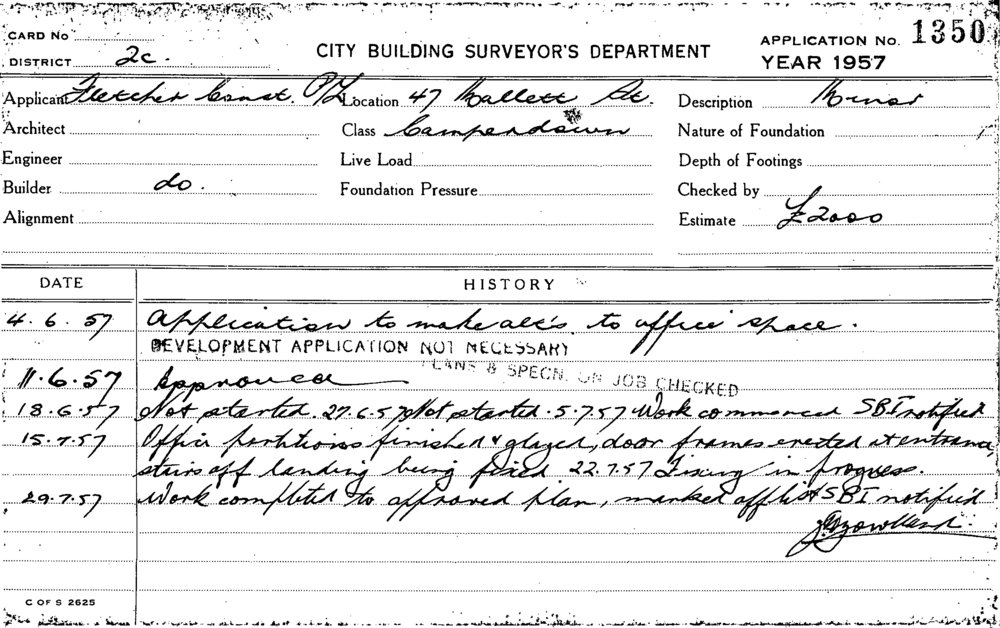 CARD No
DISTRICT 2c.
CITY BUILDING SURVEYOR'S DEPARTMENT
APPLICATION No. 1350
YEAR 1957
Applicant Fletcher Const. P/L Location 47 Mallett St. Description Minor
Architect Class Camperdown Nature of Foundation
Engineer Live Load Depth of Footings
Builder do. Foundation Pressure Checked by
Alignment Estimate £2000
DATE HISTORY
4.6.57 Application to make alt's. to office space.
DEVELOPMENT APPLICATION NOT NECESSARY
PLANS & SPECN. ON JOB CHECKED
11.6.57 Approved
18.6.57 Not started. 27.6.57 Not started. 5.7.57 Work commenced SBI notified
15.7.57 Office partitions finished & glazed, door frames erected at entrance,
stairs off landing being fixed 22.7.57 Fixing in progress.
29.7.57 Work completed to approved plan, marked off list SBI notified
C OF S 2625